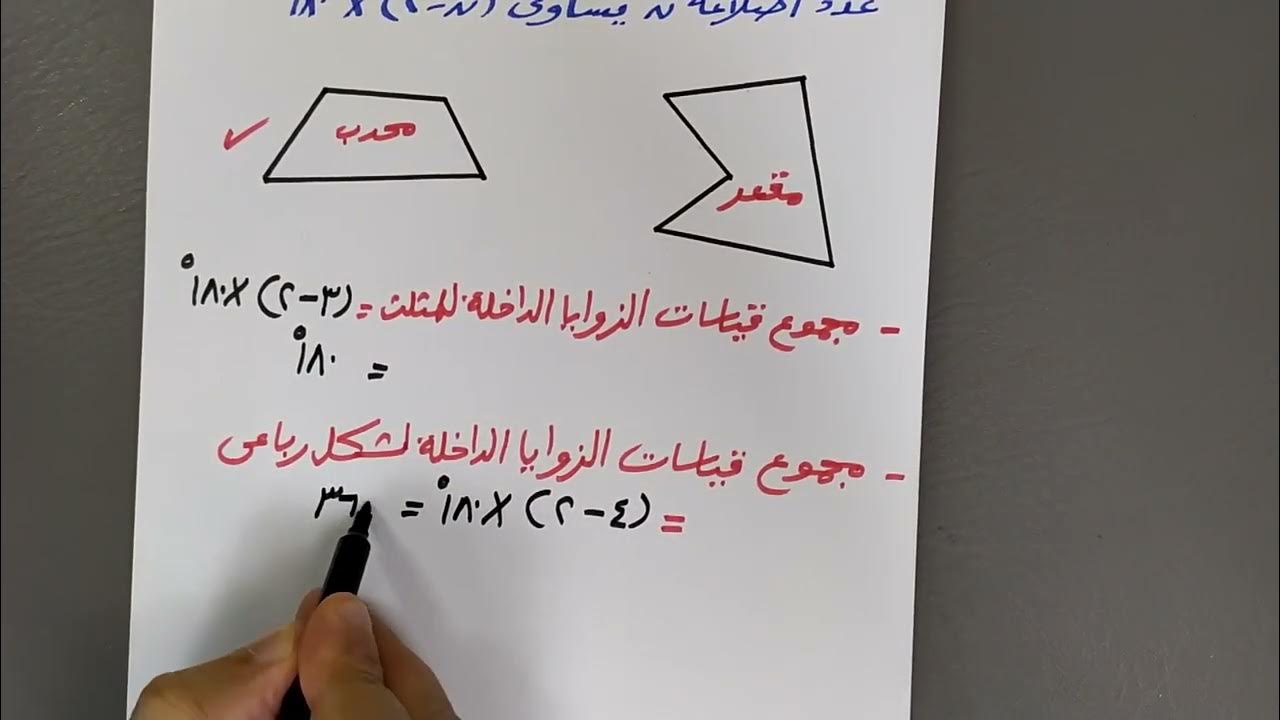 عدد أضلاعه ن يساوى (ن-٢) × ١٨٠
محدب ✓
مقعر
- مجموع قياسات الزوايا الداخلة للمثلث = (٣-٢) ×١٨٠°
= ١٨٠°
- مجموع قياسات الزوايا الداخلة لشكل رباعى
= (٤-٢) ×١٨٠° = ٣٦٠